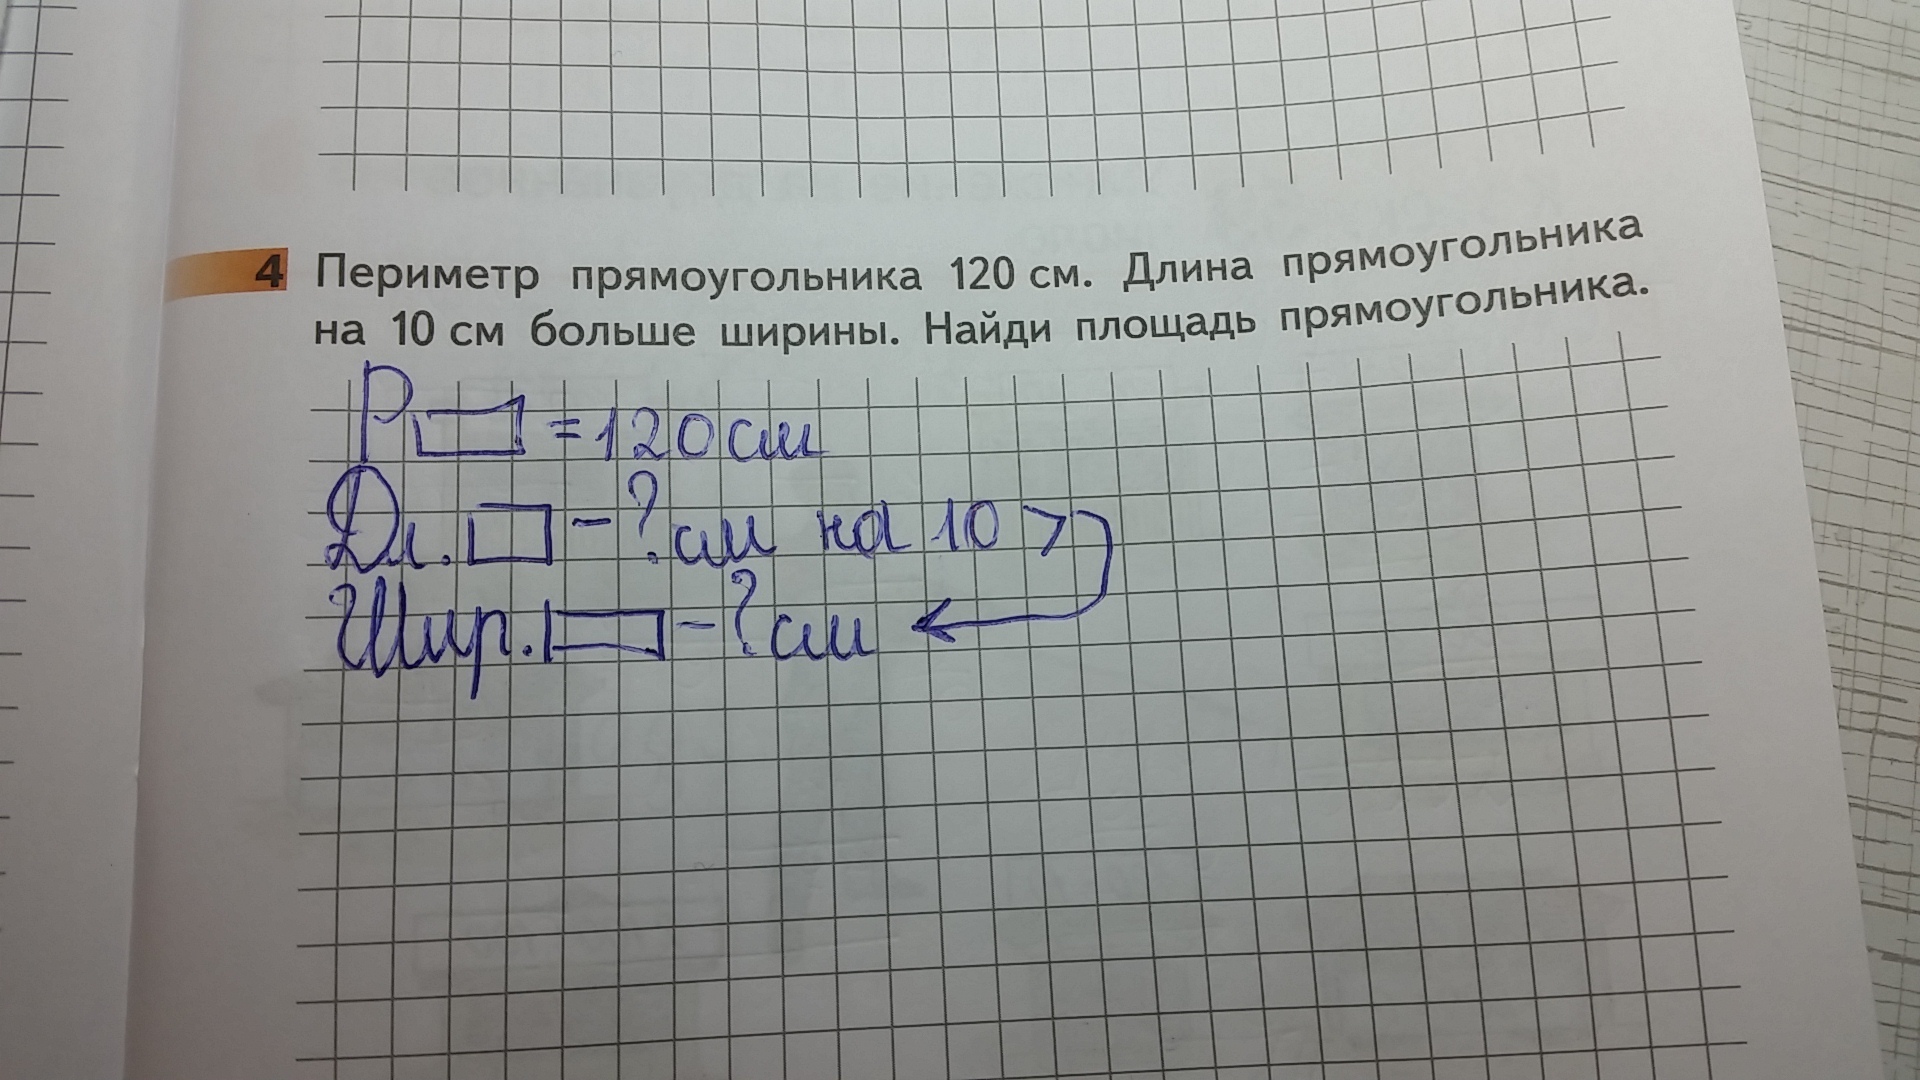 4 Периметр прямоугольника 120 см. Длина прямоугольника
на 10 см больше ширины. Найди площадь прямоугольника.
P▭ = 120 см
Дл. ▭ - ? см на 10 >
Шир. ▭ - ? см